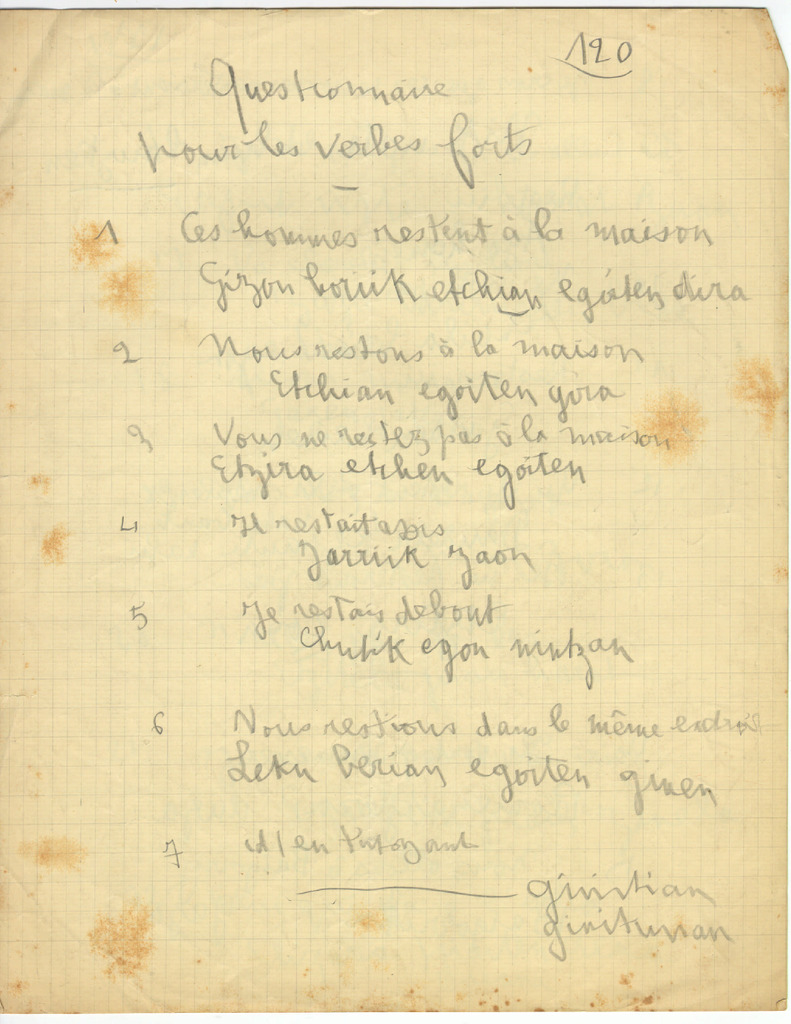 120
Questionnaire
pour les verbes forts
1 Ces hommes restent à la maison
Gizon horiik etchian egoiten dira
2 Nous restons à la maison
Etchian egoiten gira
3 Vous ne restez pas à la maison
Etzira etchen egoiten
4 Il restait assis
Jarriik zaon
5 Je restais debout
Chutik egon nintzan
6 Nous restions dans le même endroit
Leku berian egoiten ginen
7 id / en tutoyant
ginitian
ginitunan